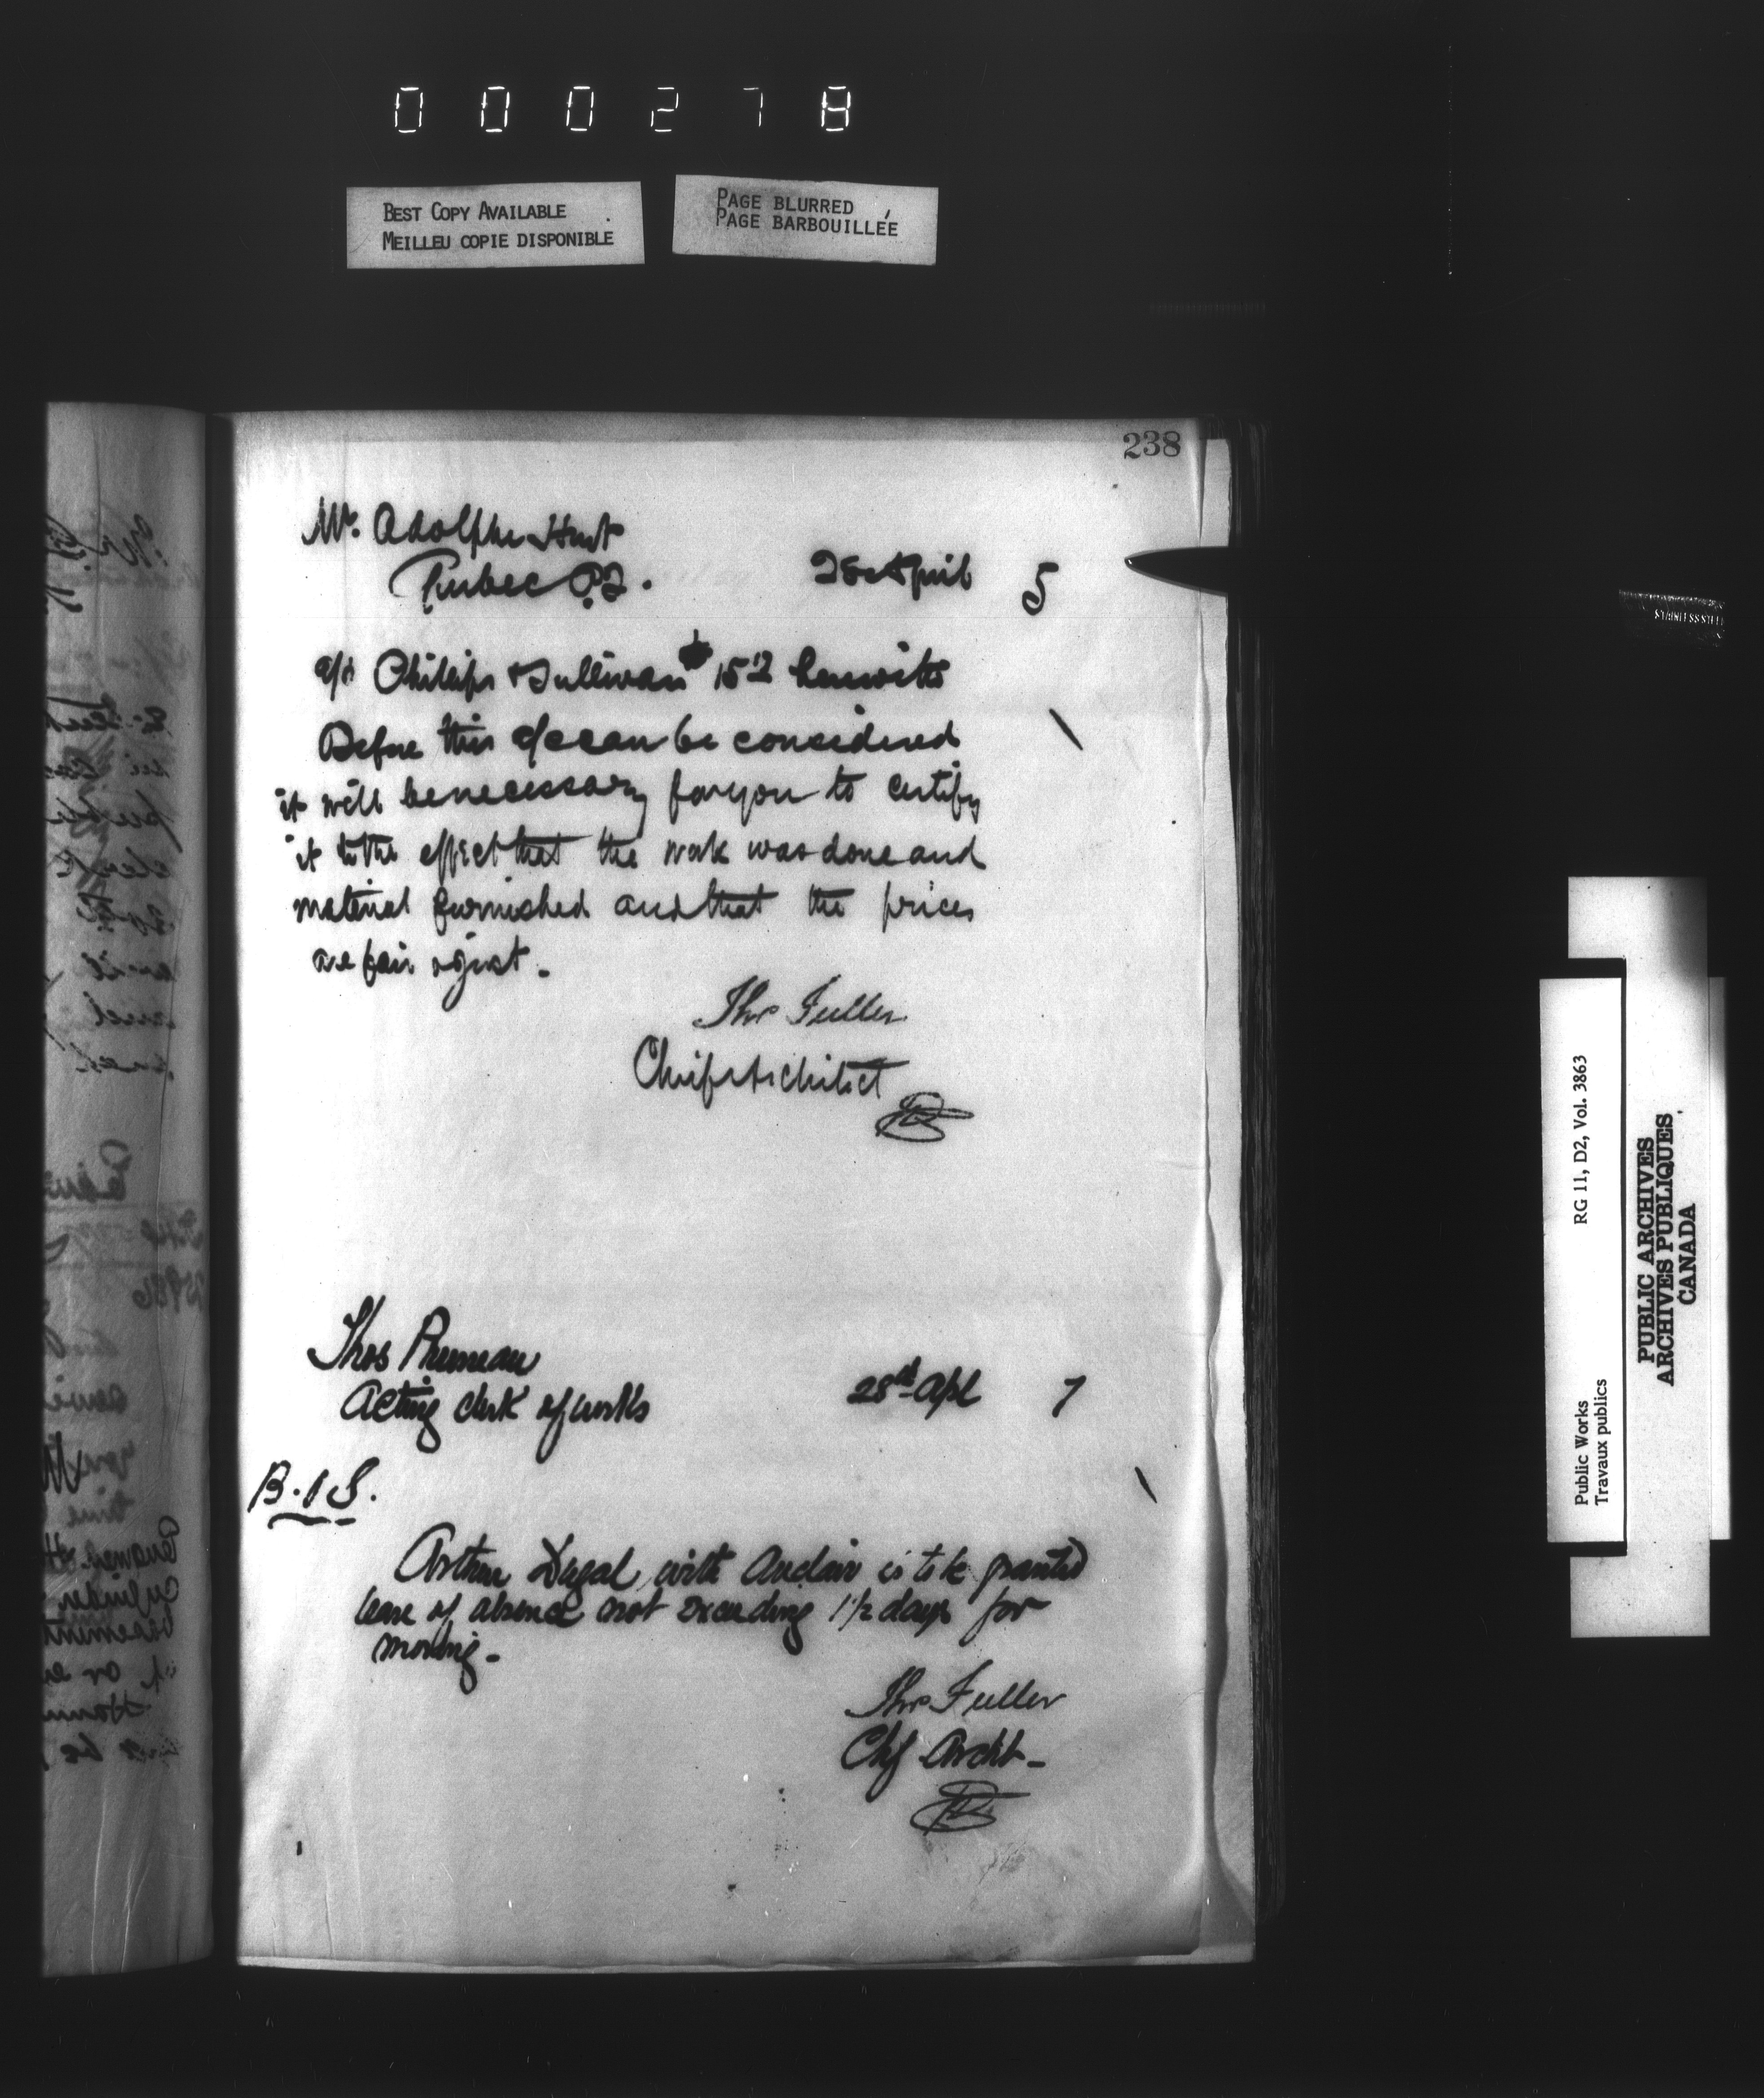 000278
BEST COPY AVAILABLE
MEILLEU COPIE DISPONIBLE
PAGE BLURRED
PAGE BARBOUILLÉE
238
Mr. Adolphe Huot
Quebec P.Q. 28 April 5
a/c Phillips & Sullivan $ 15.12 herewith
Before this a/c can be considered
it will be necessary for you to certify
it to the effect that the work was done and
material furnished and that the prices
are fair & just.
Thos Fuller
Chief Architect
Thos
Acting clerk of works 28th Apl 7
B.1S.
Arthur Dugal with Auclair is to be granted
leave of absence not exceeding 1 1/2 days for
moving -
Thos Fuller
Chf Archt -
Public Works RG 11, D2, Vol. 3863
Travaux publics
PUBLIC ARCHIVES
ARCHIVES PUBLIQUES
CANADA